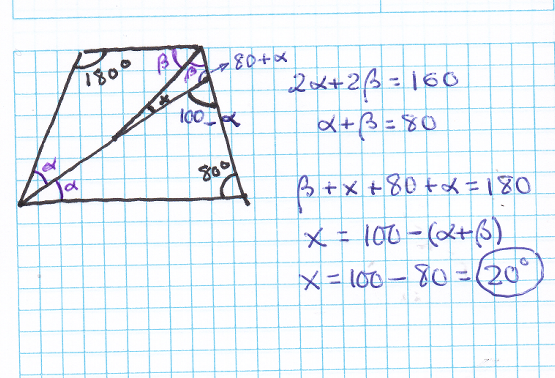 β
80+α
180°
β
x
100-α
α
α
80°
2α+2β=160
α+β=80
β+x+80+α=180
x = 100-(α+β)
x = 100-80 = 20°